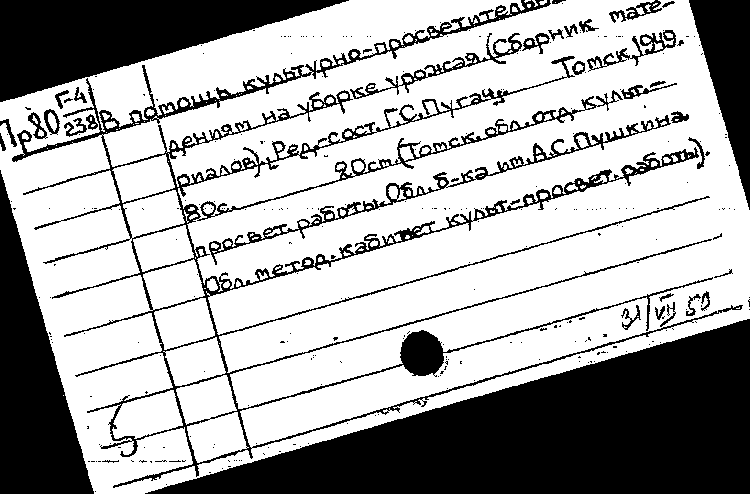 Пр80 F-4/238
В помощь культурно-просветительн
дениям на уборке урожая. (Сборник мате-
риалов). [Ред.-сост. Г.С.Пугач]. Томск, 1949.
80с. 20см. (Томск. обл. отд. культ.-
просвет. работы. Обл. б-ка им. А.С. Пушкина.
Обл. метод. кабинет культ.-просвет. работы).
31/VII 50
5